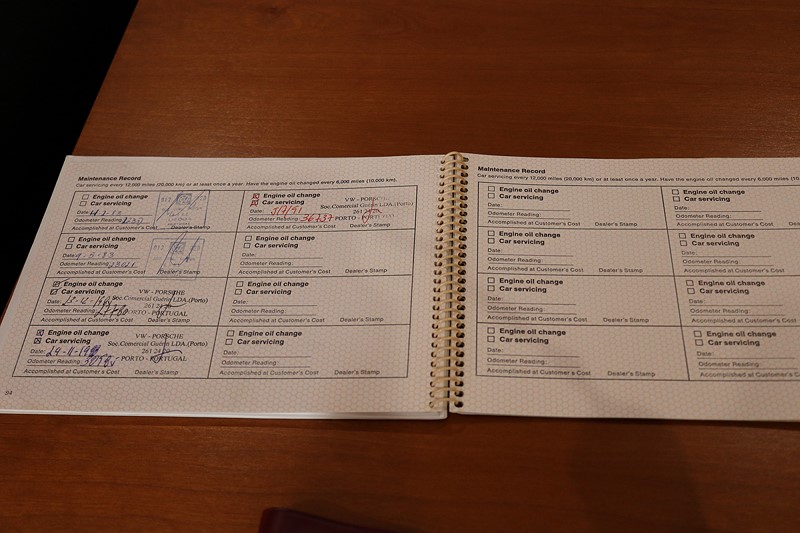 Maintenance Record
Car servicing every 12,000 miles (20,000 km) or at least once a year. Have the engine oil changed every 6,000 miles (10,000 km).
Engine oil change
Car servicing
Date:
Odometer Reading:
Accomplished at Customer's Cost Dealer's Stamp
Engine oil change
Car servicing
Date:
Odometer Reading:
Accomplished at Customer's Cost Dealer's Stamp
Engine oil change
Car servicing
Date:
Odometer Reading:
Accomplished at Customer's Cost Dealer's Stamp
VW - PORSCHE
Soc.Comercial Guérin LDA (Porto)
PORTO - PORTUGAL
Engine oil change
Car servicing
Date:
Odometer Reading:
Accomplished at Customer's Cost Dealer's Stamp
VW - PORSCHE
Soc.Comercial Guérin LDA (Porto)
PORTO - PORTUGAL
Engine oil change
Car servicing
Date:
Odometer Reading: 36737
Accomplished at Customer's Cost Dealer's Stamp
VW - PORSCHE
Soc.Comercial Guérin LDA (Porto)
Engine oil change
Car servicing
Date:
Odometer Reading:
Accomplished at Customer's Cost Dealer's Stamp
Engine oil change
Car servicing
Date:
Odometer Reading:
Accomplished at Customer's Cost Dealer's Stamp
Engine oil change
Car servicing
Date:
Odometer Reading:
Accomplished at Customer's Cost Dealer's Stamp
94
Maintenance Record
Car servicing every 12,000 miles (20,000 km) or at least once a year. Have the engine oil changed every 6,000 miles (10
Engine oil change
Car servicing
Date:
Odometer Reading:
Accomplished at Customer's Cost Dealer's Stamp
Engine oil change
Car servicing
Date:
Odometer Reading:
Accomplished at Customer's Cost Dealer's Stamp
Engine oil change
Car servicing
Date:
Odometer Reading:
Accomplished at Customer's Cost Dealer's Stamp
Engine oil change
Car servicing
Date:
Odometer Reading:
Accomplished at Customer's Cost Dealer's Stamp
Engine oil change
Car servicing
Date:
Odometer Reading:
Accomplished at Customer's Cost
Engine oil change
Car servicing
Date:
Odometer Reading:
Accomplished at Customer's Cost
Engine oil change
Car servicing
Date:
Odometer Reading:
Accomplished at Customer's Cost
Engine oil change
Car servicing
Date:
Odometer Reading:
Accomplished at Customer's Cost